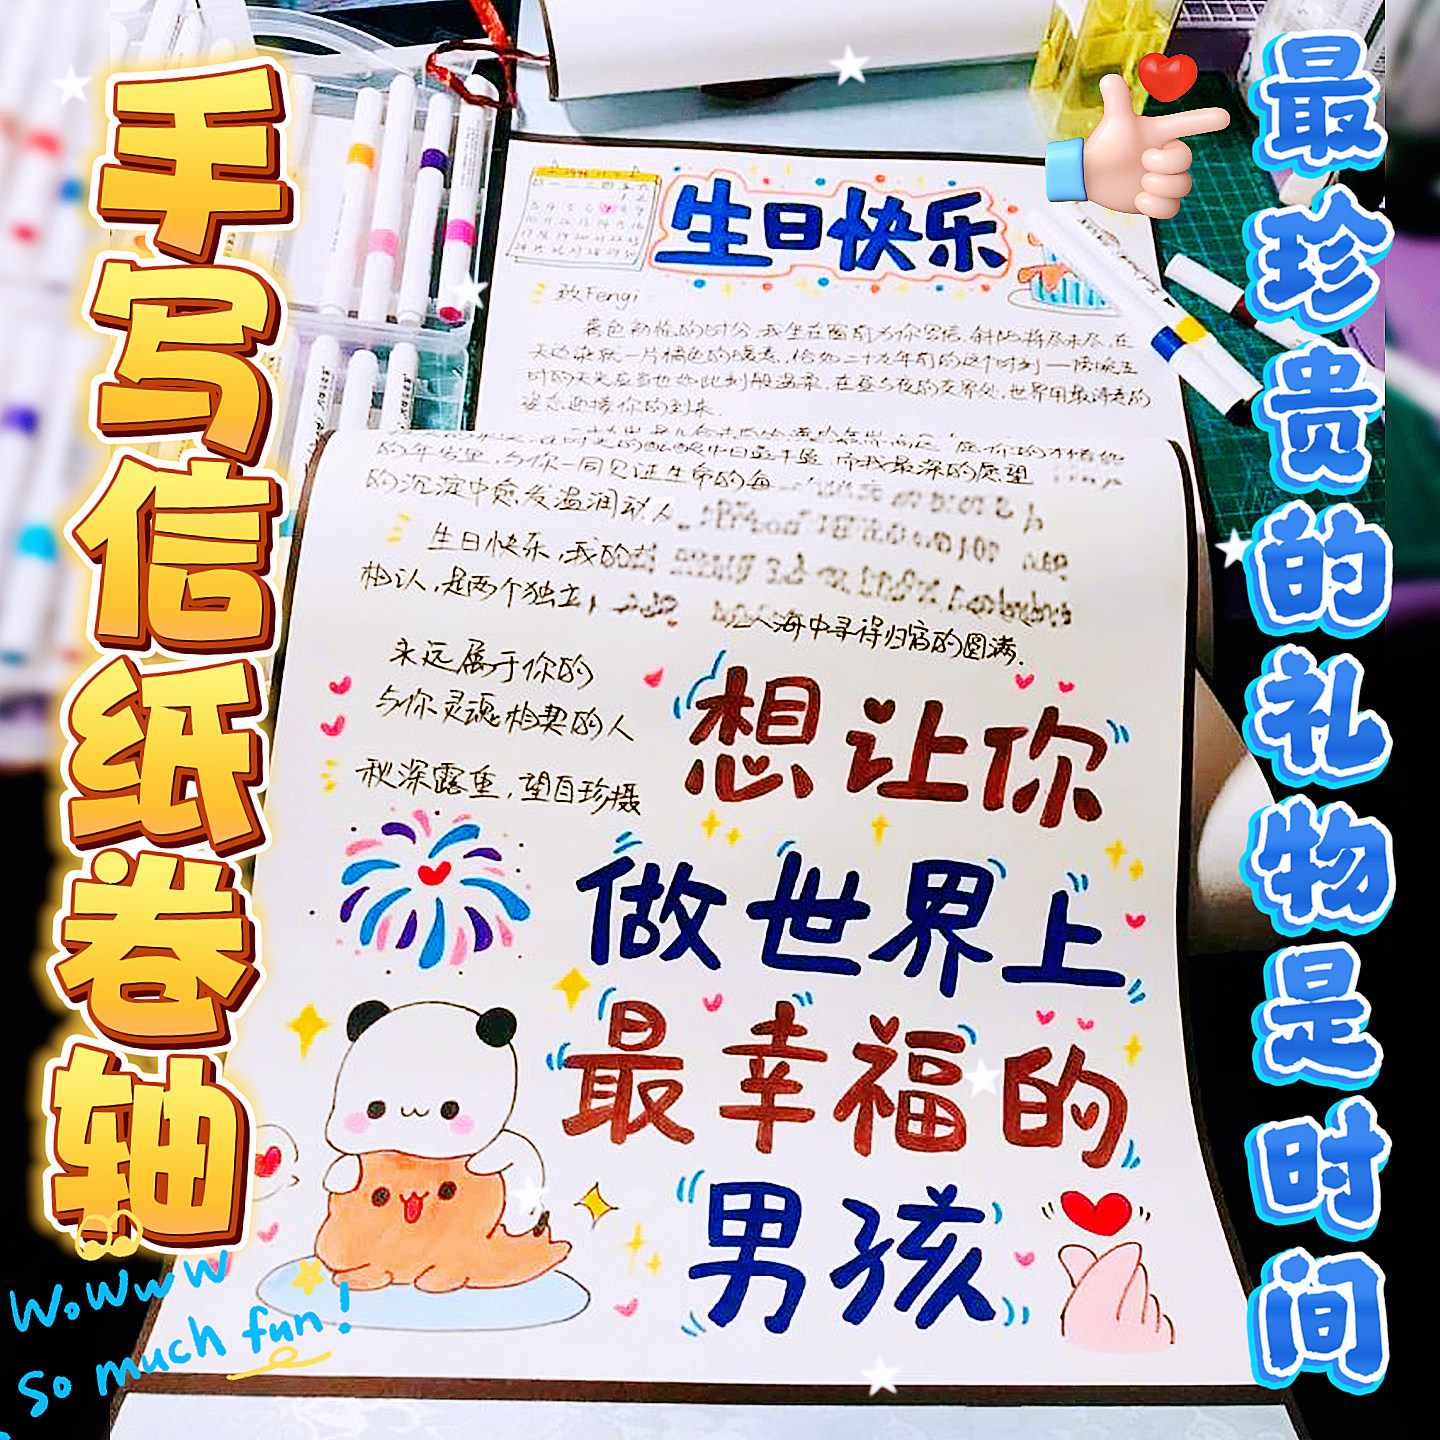 手写信纸卷轴
最珍贵的礼物是时间
生日快乐
致Fengi
暮色初临的时分,我坐在窗前为你写信.斜阳将尽未尽,在
天边染就一片橘色的暖意.恰如二十九年前的这个时刻——傍晚五
时的天光应当也如此刻般温柔,在昼与夜的交界处,世界用最诗意的
姿态迎接你的到来.
的年岁里,与你一同见证生命的每
的沉淀中愈发温润动人。
生日快乐,我的
相认,是两个独立
人海中寻得归宿的圆满.
永远属于你的
与你灵魂相契的人
秋深露重,望自珍摄
想让你
做世界上
最幸福的
男孩
Wowww
So much fun!